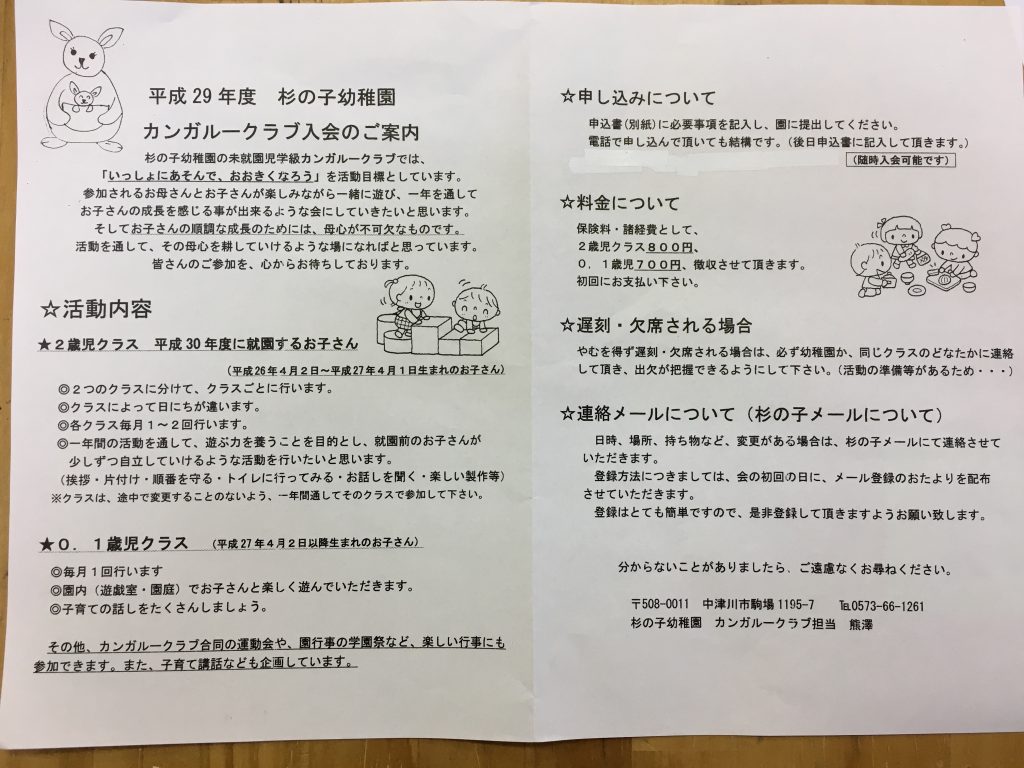 平成29年度　杉の子幼稚園
カンガルークラブ入会のご案内
杉の子幼稚園の未就園児学級カンガルークラブでは、
「いっしょにあそんで、おおきくなろう」を活動目標としています。
参加されるお母さんとお子さんが楽しみながら一緒に遊び、一年を通して
お子さんの成長を感じる事が出来るような会にしていきたいと思います。
そしてお子さんの順調な成長のためには、母心が不可欠なものです。
活動を通して、その母心を耕していけるような場になればと思っています。
皆さんのご参加を、心からお待ちしております。
☆活動内容
★２歳児クラス　平成30年度に就園するお子さん
（平成26年４月２日～平成27年４月１日生まれのお子さん）
◎２つのクラスに分けて、クラスごとに行います。
◎クラスによって日にちが違います。
◎各クラス毎月１～２回行います。
◎一年間の活動を通して、遊ぶ力を養うことを目的とし、就園前のお子さんが
少しずつ自立していけるような活動を行いたいと思います。
（挨拶・片付け・順番を守る・トイレに行ってみる・お話しを聞く・楽しい製作等）
※クラスは、途中で変更することのないよう、一年間通してそのクラスで参加して下さい。
★０．１歳児クラス　（平成27年４月２日以降生まれのお子さん）
◎毎月１回行います
◎園内（遊戯室・園庭）でお子さんと楽しく遊んでいただきます。
◎子育ての話しをたくさんしましょう。
その他、カンガルークラブ合同の運動会や、園行事の学園祭など、楽しい行事にも
参加できます。また、子育て講話なども企画しています。
☆申し込みについて
申込書(別紙)に必要事項を記入し、園に提出してください。
電話で申し込んで頂いても結構です。（後日申込書に記入して頂きます。）
（随時入会可能です）
☆料金について
保険料・諸経費として、
２歳児クラス８００円、
０．１歳児７００円、徴収させて頂きます。
初回にお支払い下さい。
☆遅刻・欠席される場合
やむを得ず遅刻・欠席される場合は、必ず幼稚園か、同じクラスのどなたかに連絡
して頂き、出欠が把握できるようにして下さい。（活動の準備等があるため・・・）
☆連絡メールについて（杉の子メールについて）
日時、場所、持ち物など、変更がある場合は、杉の子メールにて連絡させて
いただきます。
登録方法につきましては、会の初回の日に、メール登録のおたよりを配布
させていただきます。
登録はとても簡単ですので、是非登録して頂きますようお願い致します。
分からないことがありましたら、ご遠慮なくお尋ねください。
〒508-0011　中津川市駒場1195-7　℡0573-66-1261
杉の子幼稚園　カンガルークラブ担当　熊澤